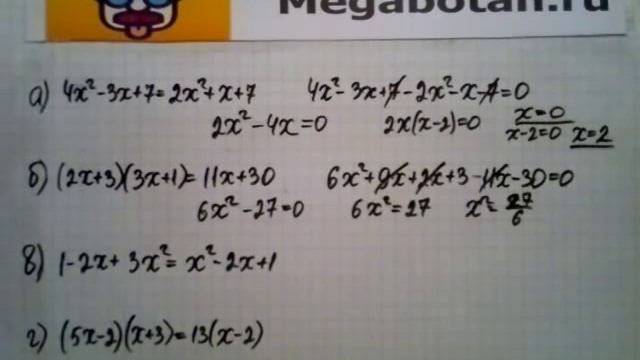 Megabotan.ru
а) 4x²-3x+7=2x²+x+7 4x²-3x+7-2x²-x-7=0
2x²-4x=0 2x(x-2)=0 x=0 x-2=0 x=2
б) (2x+3)(3x+1)=11x+30 6x²+9x+2x+3-11x-30=0
6x²-27=0 6x²=27 x²=27/6
в) 1-2x+3x²=x²-2x+1
г) (5x-2)(x+3)=13(x-2)